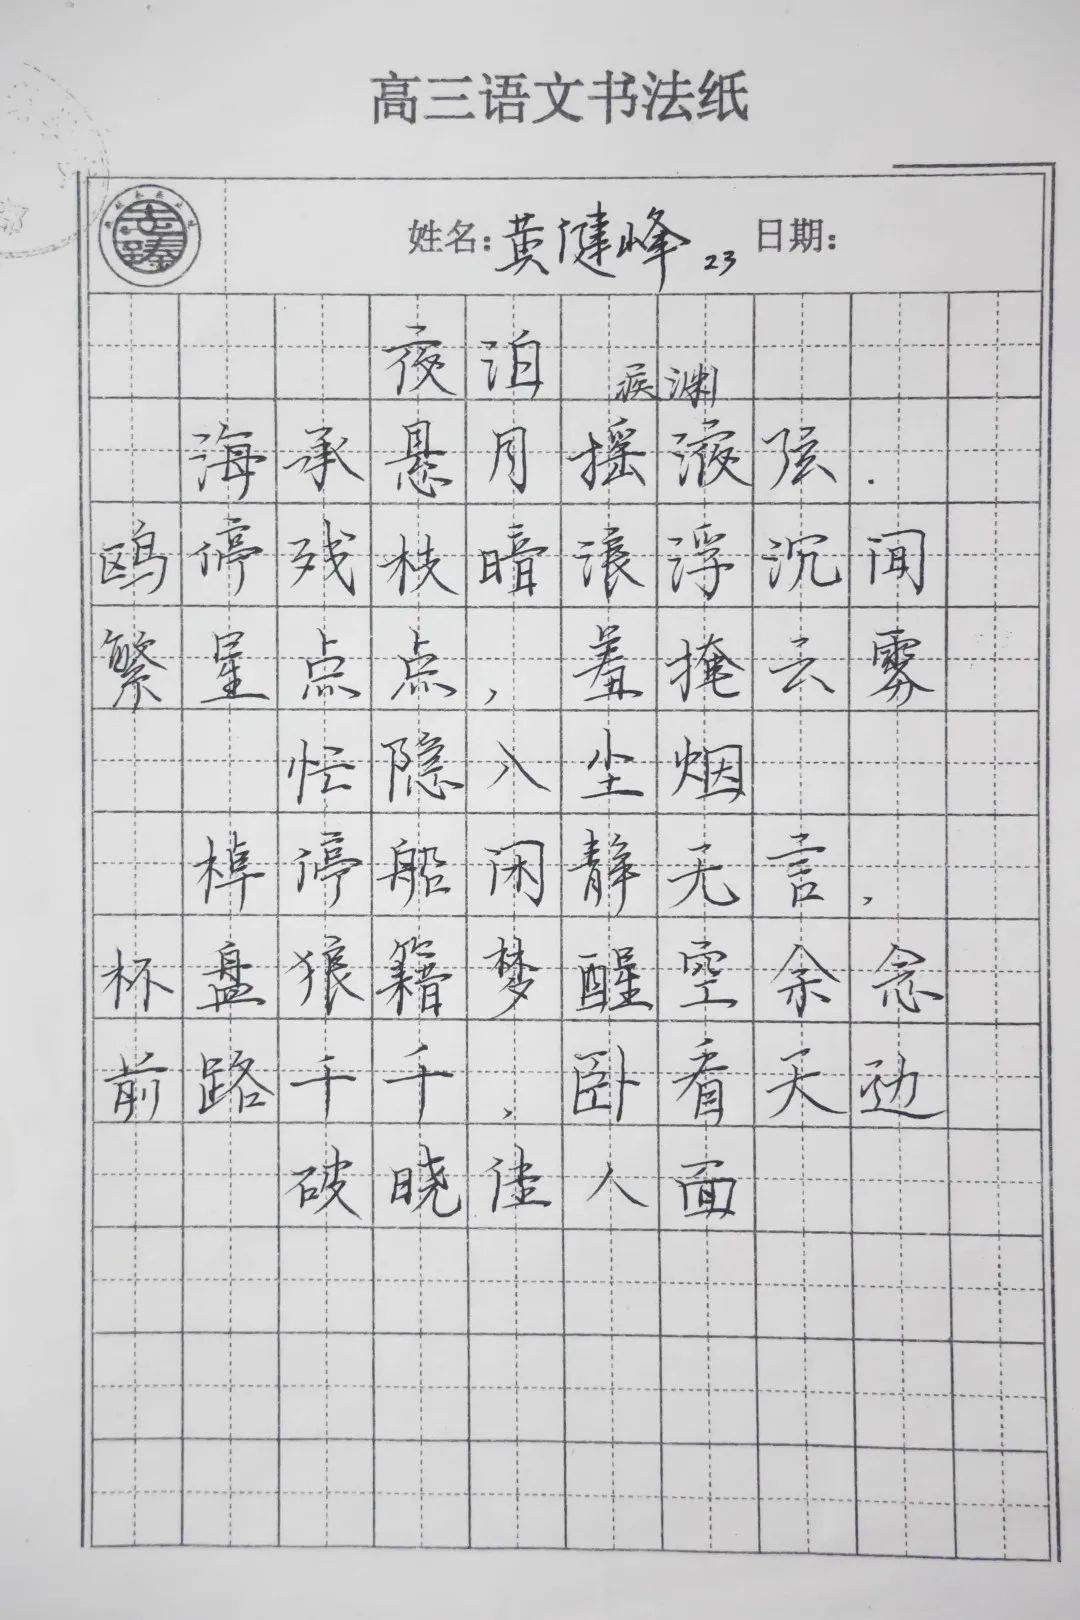 高三语文书法纸
姓名: 黄健峰 23 日期:
夜泊
淚渊
海承悬月摇液弦.
鸥停残枝暗滚浮沉间
繁星点点,羞掩云雾
忙隐入尘烟
棹停船闲静无言,
杯盘狼籍梦醒空余念
前路千千,卧看天边
破晓佳人面